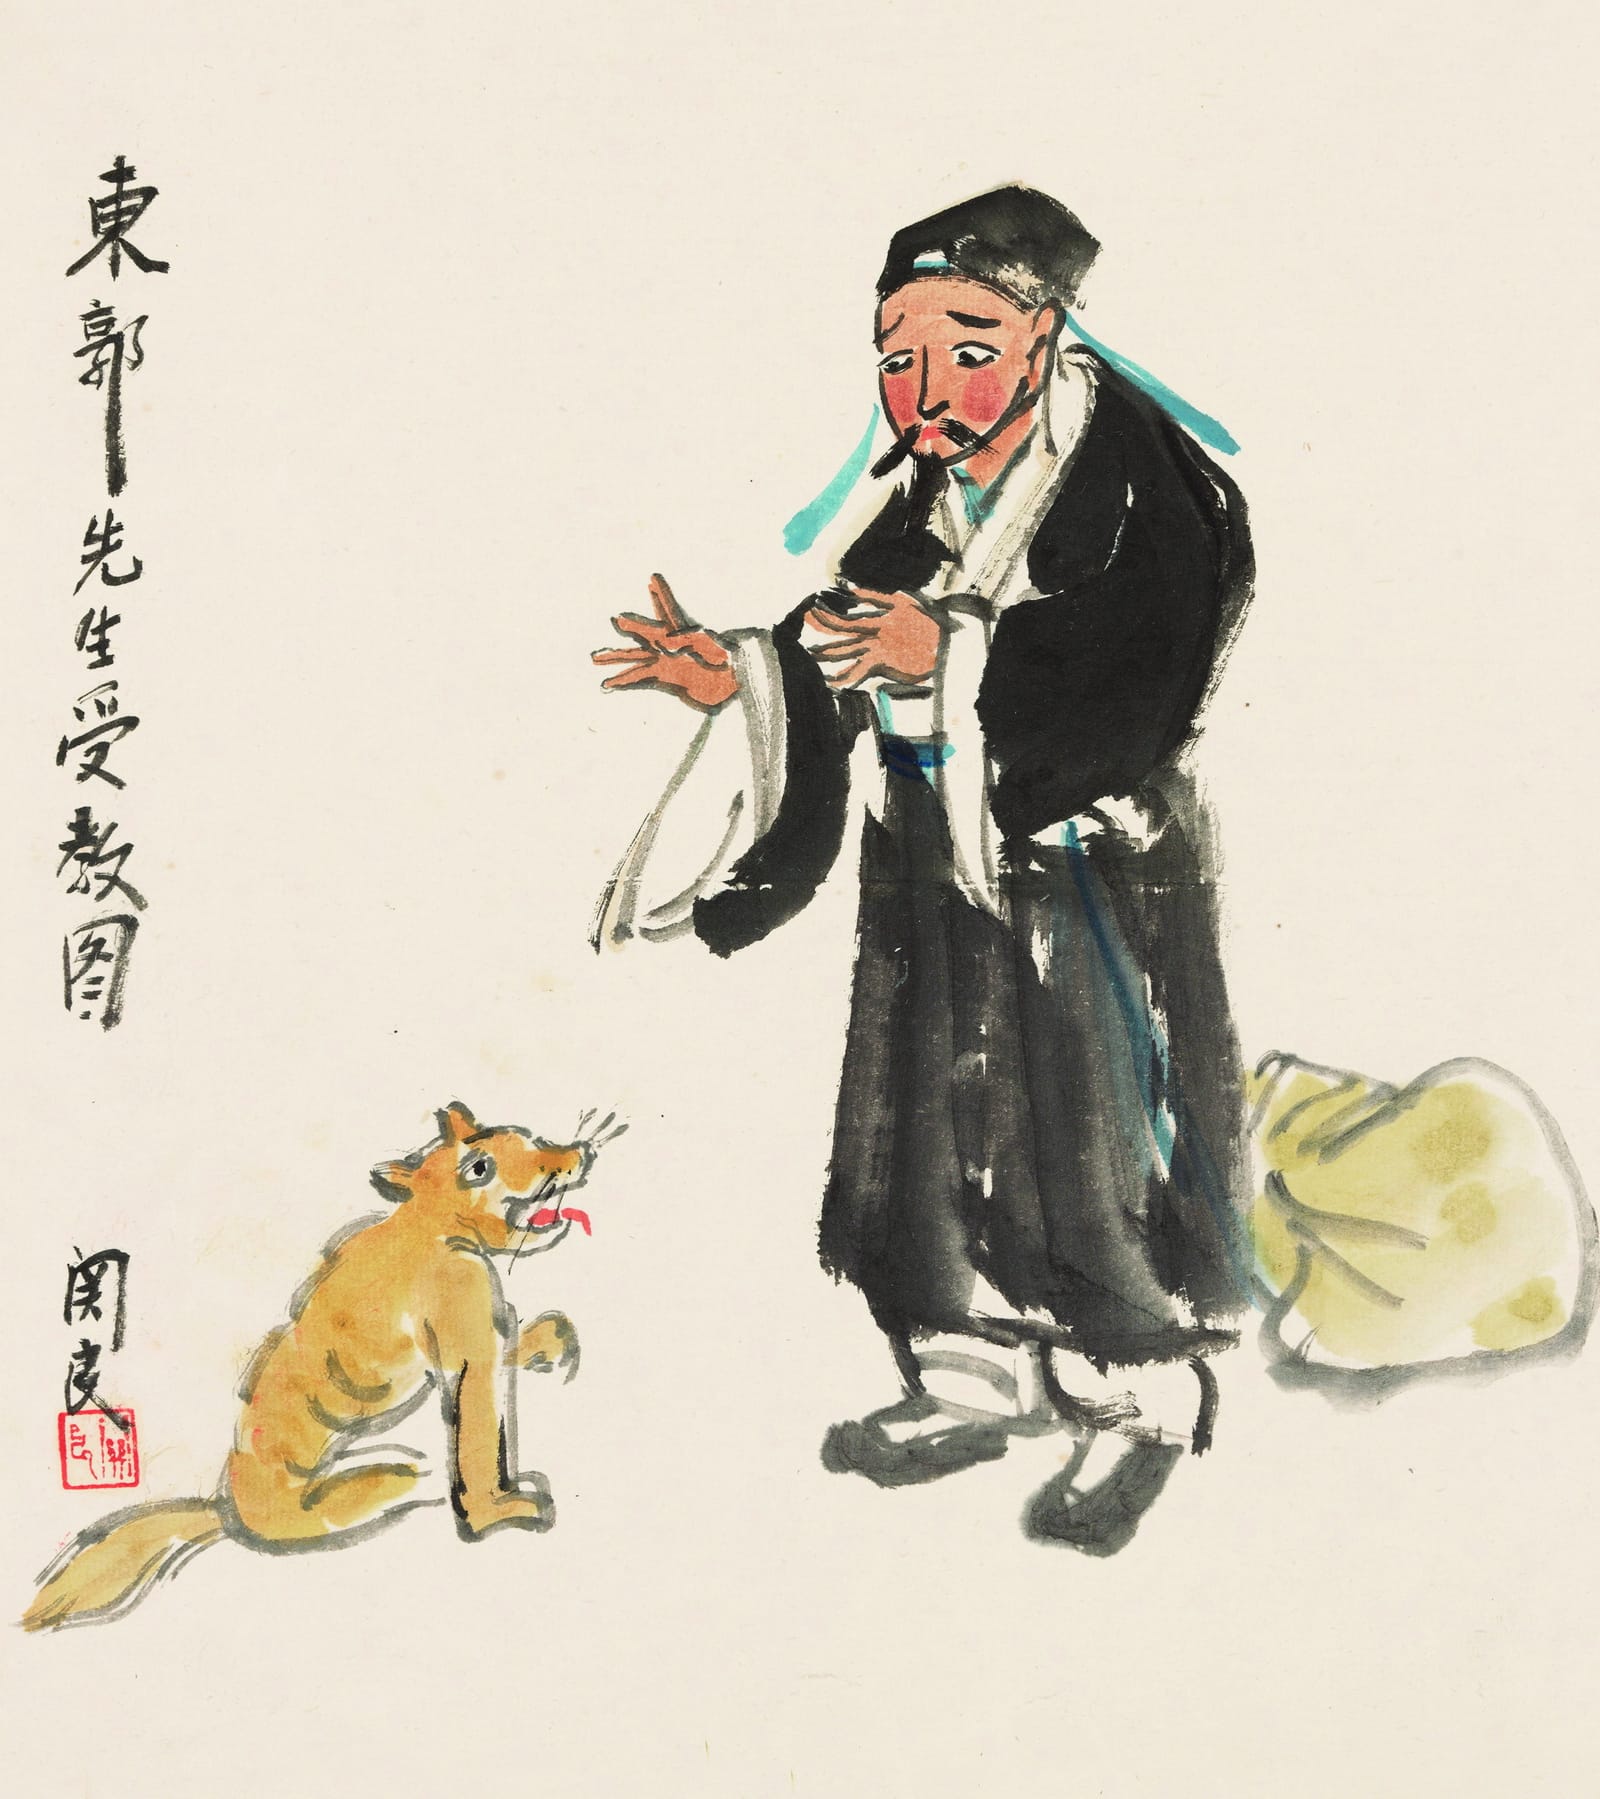 東郭先生受教图
関良
関良